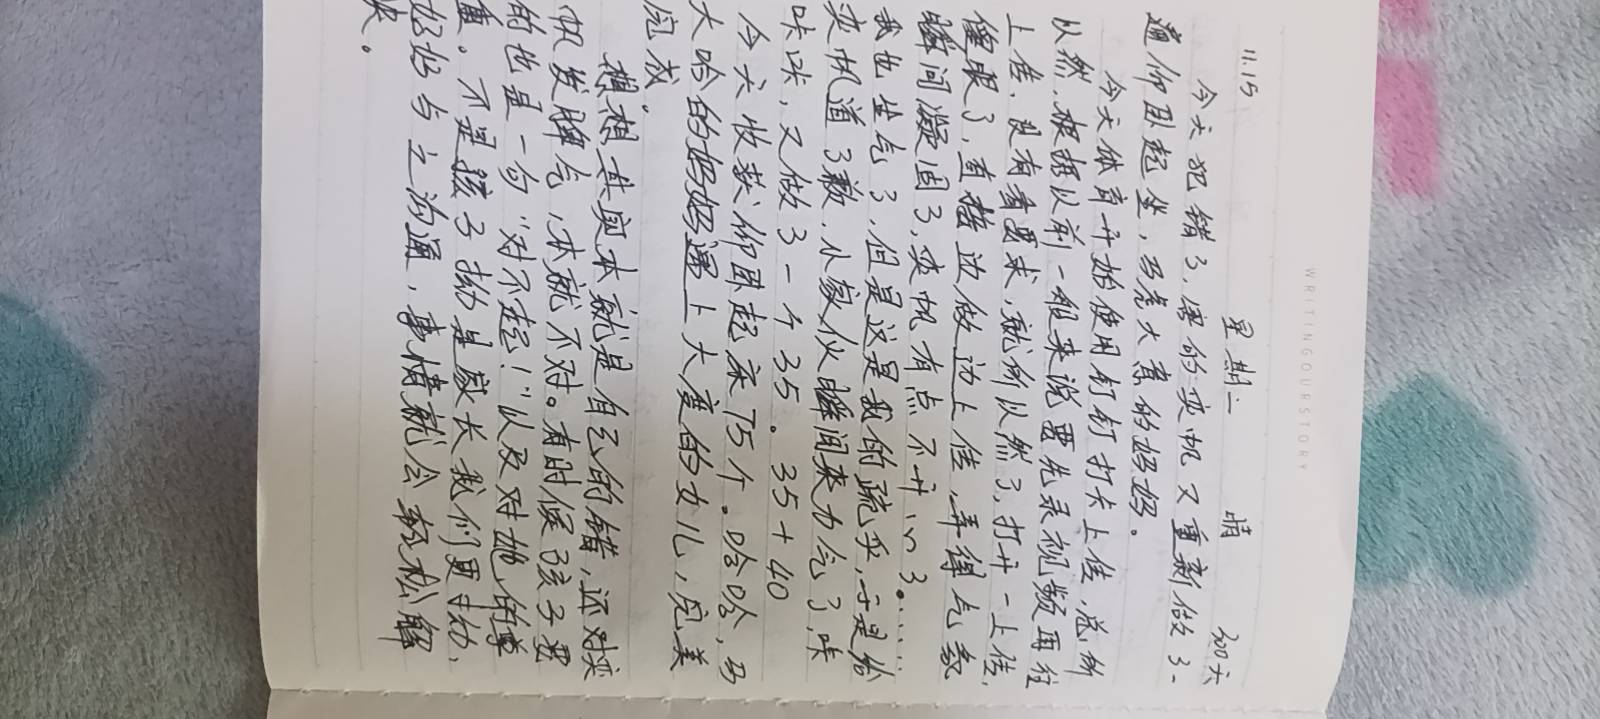 WRITING OUR STORY
11.15 星期二 晴 300天
今天犯错了,害的奕帆又重新做了一
遍仰卧起坐,马虎大意的妈妈。
今天体育开始使用钉钉打卡上传,忽所
以然,根据以前一般来说要先录视频再往
上传,没有看要求,就所以然了,打开一上传,
傻眼了,直接边做边上传,弄得气氛
瞬间凝固了,奕帆有点不开心了。……
我也生气了,但是这是我的疏乎,于是给
奕帆道了歉,小家伙瞬间来力气了,咔
咔咔,又做了一个35。35+40
今天收获仰卧起来75个。哈哈,马
大哈的妈妈遇上大度的女儿,完美
完成。
想想其实本就是自己的错,还对奕
帆发脾气,本就不对。有时候孩子要
的也是一句“对不起!”以及对她的尊
重。不是孩子拗是家长我们更拗,
好好与之沟通,事情就会轻松解
决。